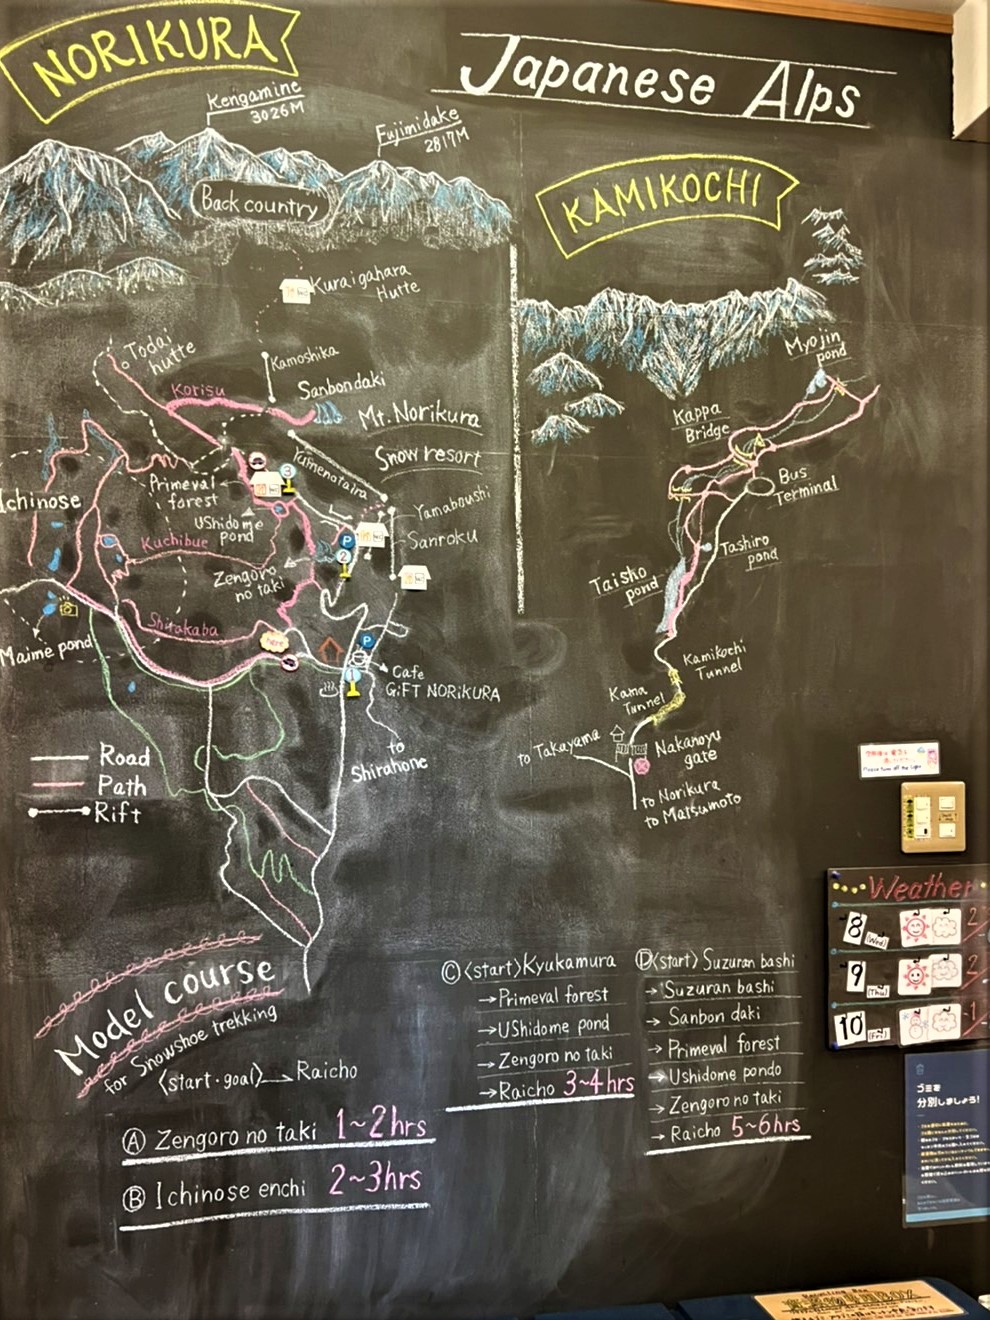 NORIKURA
Japanese Alps
Kengamine
3026M
Fujimidake
2817M
Back country
KAMIKOCHI
Kuraigahara
Hutte
Todai
hutte
Kamoshika
Korisu
Sanbondaki
Mt. Norikura
Snow resort
Yumenotaira
Primeval
forest
3
Ichinose
UShidome
pond
Yamaboushi
Sanroku
P
2
Kuchibue
Zengoro
no taki
Shirakaba
here
Maime pond
P
1
Cafe
GiFT NORiKURA
to
Shirahone
Road
Path
Rift
Myojin
pond
Kappa
Bridge
Bus
Terminal
Tashiro
pond
Taisho
pond
Kamikochi
Tunnel
Kama
Tunnel
to Takayama
Nakanoyu
gate
to Norikura
to Matsumoto
Please turn off the light
Weather
8 (Wed) 2
9 (Thu) 2
10 (Fri) -1
ゴミを
分別しましょう!
Model course
for Snowshoe trekking
<start・goal> Raicho
Ⓐ Zengoro no taki 1~2hrs
Ⓑ Ichinose enchi 2~3hrs
Ⓒ <start> Kyukamura
→Primeval forest
→UShidome pond
→Zengoro no taki
→Raicho 3~4hrs
Ⓓ <start> Suzuran bashi
→Suzuran bashi
→ Sanbon daki
→ Primeval forest
→ Ushidome pondo
→ Zengoro no taki
→ Raicho 5~6hrs